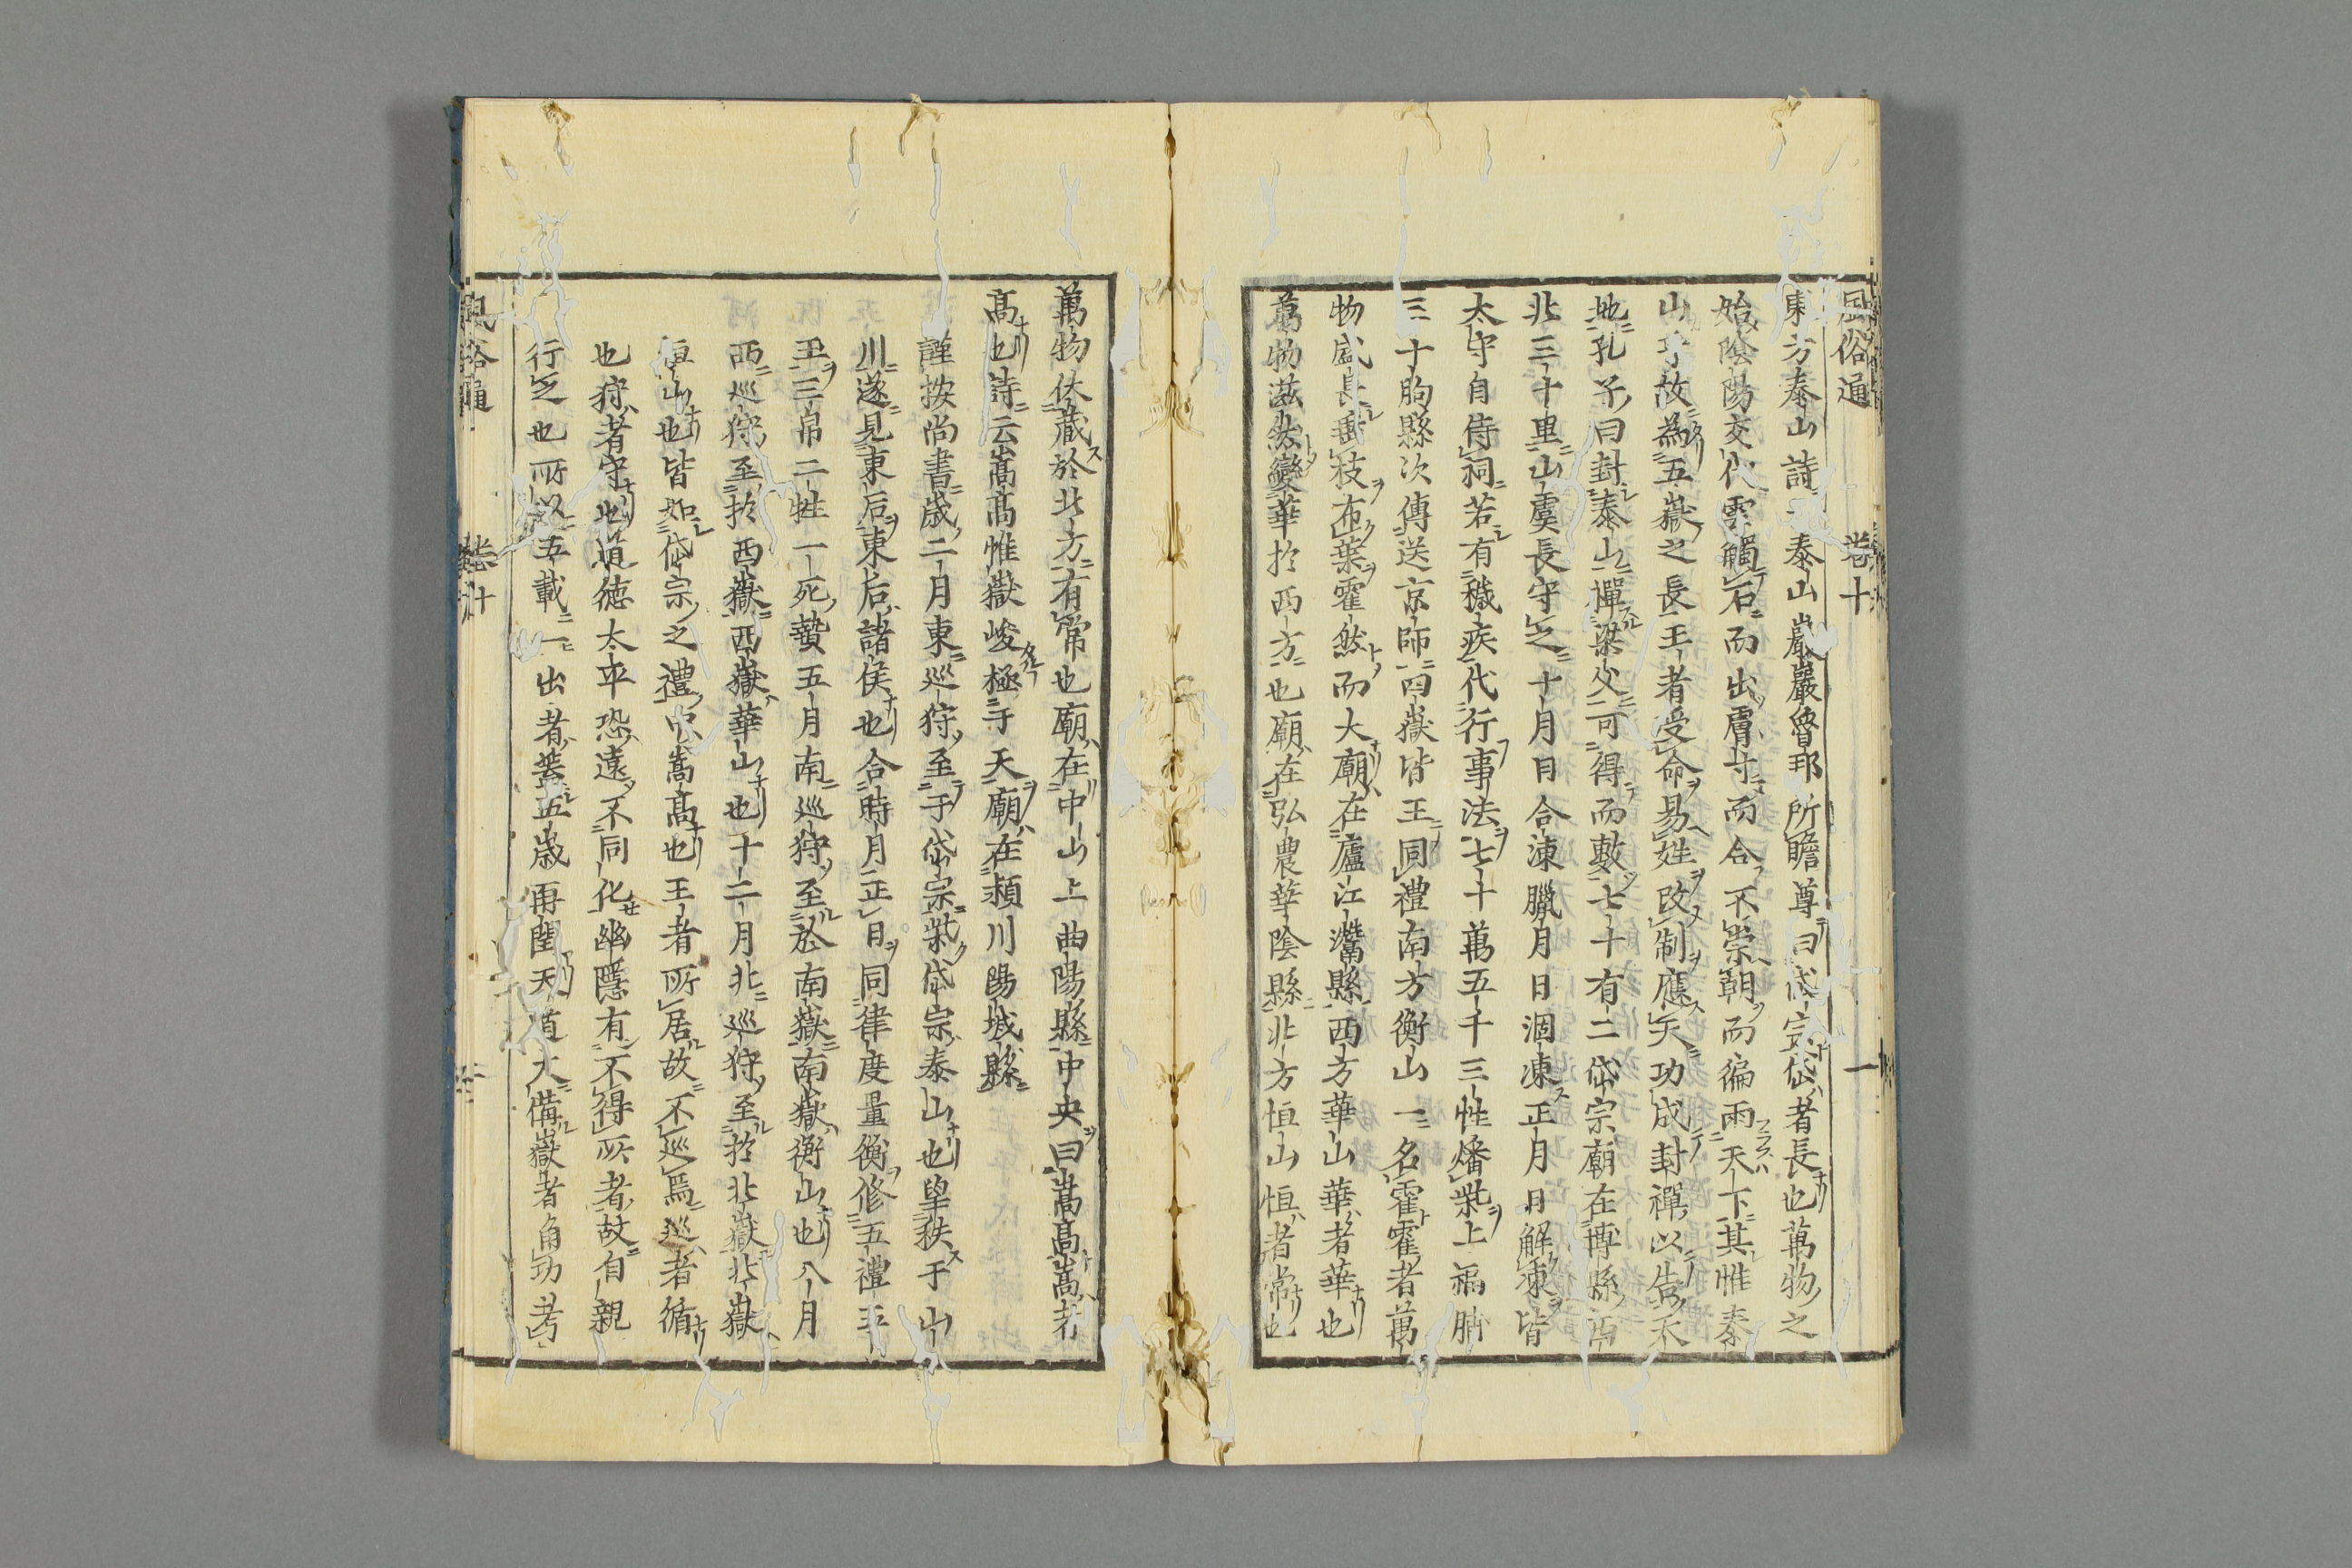 風俗通 卷十 一
東方泰山詩云泰山巖巖魯邦所瞻尊曰岱宗岱者長也萬物之
始陰陽交代雲觸石而出膚寸而合不崇朝而徧雨天下其惟泰
山乎故為五嶽之長王者受命易姓改制應天功成封禪以告天
地孔子曰封泰山禪梁父可得而數七十有二岱宗廟在博縣西
北三十里山虞長守之十月日合凍臘月日涸凍正月日解凍皆
太守自侍祠若有穢疾代行事法七十萬五千三牲燔柴上福脯
三十朐縣次傳送京師四嶽皆王同禮南方衡山一名霍霍者萬
物盛長垂枝布葉霍然而大廟在廬江灊縣西方華山華者華也
萬物滋然變華於西方也廟在弘農華陰縣北方恒山恒者常也
萬物伏藏於北方有常也廟在中山上曲陽縣中央曰嵩高嵩者
高也詩云嵩高惟嶽峻極于天廟在潁川陽城縣
謹按尚書歲二月東巡狩至于岱宗柴岱宗泰山也望秩于山
川遂見東后東后諸侯也合時月正日同律度量衡修五禮五
玉三帛二牲一死贄五月南巡狩至於南嶽南嶽衡山也八月
西巡狩至於西嶽西嶽華山也十二月北巡狩至於北嶽北嶽
恒山也皆如岱宗之禮中嵩高也王者所居故不巡焉巡者循
也狩者守也道德太平恐遠不同化幽隱有不得所者故自親
行之也所以五載一出者蓋五歲再閏天道大備嶽者角功考
風俗通 卷十